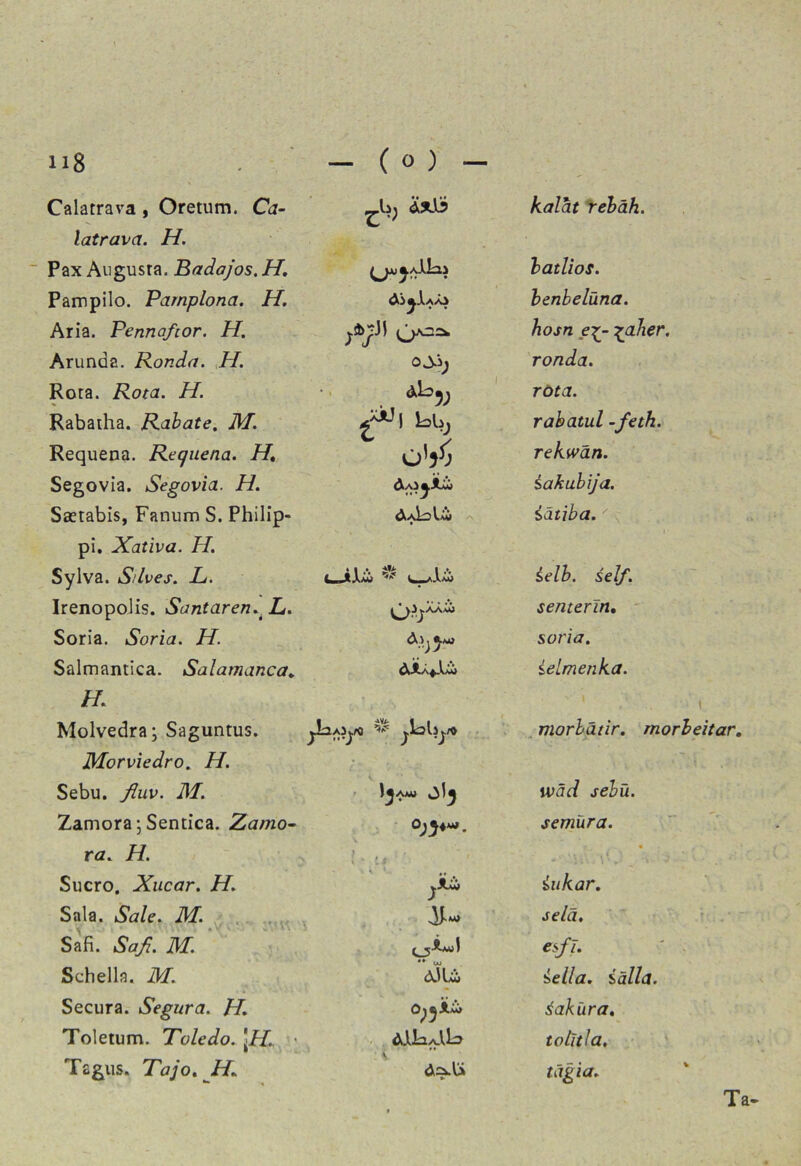 118 — ( o ) —
Calatrava, Oretum. Ca- قلعة رباح kalàt rebāh.
latrava. H.
Pax Augusta. Badajos. H. بطليوس batlios.
Pampilo. Pamplona. H. بنبلونه benbelūna.
Aria. Pennaflor. H. حصن الزهر hosn ez-zaher.
Arunda. Ronda. H. رنده ronda.
Rota. Rota. H. روطه rōta.
Rabatha. Rabate. M. رباط الفتح rabatul-feth.
Requena. Requena. H. ركوان rekwān.
Segovia. Segovia. H. شقوبيه śakubija.
Sætabis, Fanum S. Philip- شاطبه śātiba.
pi. Xativa. H.
Sylva. Silves. L. شلب * شلف śelb. śelf.
Irenopolis. Santaren. L. شنترين senterīn.
Soria. Soria. H. سوريه soria.
Salmantica. Salamanca. شلمنقه śelmenka.
H.
Molvedra; Saguntus. مرباطر * مربيطر morbātir. morbeitar.
Morviedro. H.
Sebu. fluv. M. واد سبوا wād sebū.
Zamora; Sentica. Zamo- سموره semūra.
ra. H.
Sucro. Xucar. H. شقر śukar.
Sala. Sale. M. سلا selā.
Safi. Safi. M. اسفي esfī.
Schella. M. شالّه śella. śālla.
Secura. Segura. H. شقوره śakūra.
Toletum. Toledo. H. طليطله tolītla.
Tagus. Tajo. H. تاجه tāgia.
Ta-